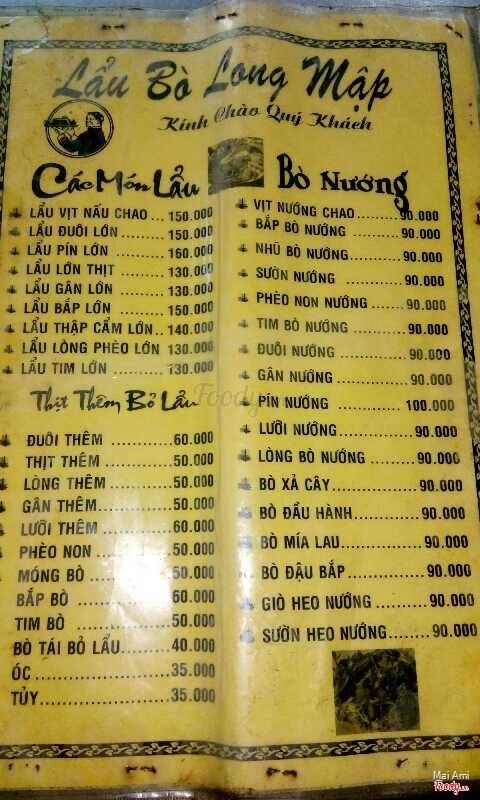 Lẩu Bò Long Mập
Kính Chào Quý Khách
Các Món Lẩu
LẨU VỊT NẤU CHAO... 150.000
LẨU ĐUÔI LỚN........ 150.000
LẨU PÍN LỚN ......... 160.000
LẨU LỚN THỊT ........ 130.000
LẨU GÂN LỚN ......... 130.000
LẨU BẮP LỚN ......... 150.000
LẨU THẬP CẨM LỚN.. 140.000
LẨU LÒNG PHÈO LỚN 130.000
LẨU TIM LỚN .......... 130.000
Thịt Thêm Bỏ Lẩu
ĐUÔI THÊM ............ 60.000
THỊT THÊM ............ 50.000
LÒNG THÊM ............ 50.000
GÂN THÊM.............. 50.000
LƯỠI THÊM ............ 60.000
PHÈO NON ............. 50.000
MÓNG BÒ .............. 50.000
BẮP BÒ ............... 60.000
TIM BÒ ............... 50.000
BÒ TÁI BỎ LẨU........ 40.000
ÓC ................... 35.000
TỦY................... 35.000
Bò Nướng
VỊT NƯỚNG CHAO....... 90.000
BẮP BÒ NƯỚNG ........ 90.000
NHŨ BÒ NƯỚNG........ 90.000
SƯỜN NƯỚNG ......... 90.000
PHÈO NON NƯỚNG ..... 90.000
TIM BÒ NƯỚNG ....... 90.000
ĐUÔI NƯỚNG.......... 90.000
GÂN NƯỚNG........... 90.000
PÍN NƯỚNG .......... 100.000
LƯỠI NƯỚNG.......... 90.000
LÒNG BÒ NƯỚNG ...... 90.000
BÒ XẢ CÂY........... 90.000
BÒ ĐẦU HÀNH......... 90.000
BÒ MÍA LAU.......... 90.000
BÒ ĐẬU BẮP ......... 90.000
GIÒ HEO NƯỚNG ...... 90.000
SƯỜN HEO NƯỚNG...... 90.000
Foody
Mai Ami
Foody.vn